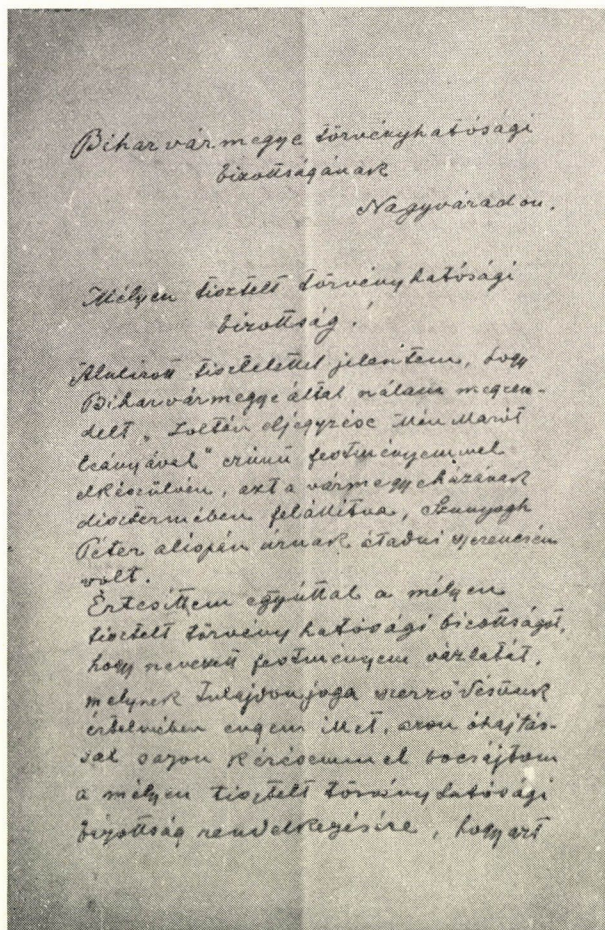 Biharvármegye törvényhatósági
bizottságának
Nagyváradon.
Mélyen tisztelt törvényhatósági
bizottság!
Alulirott tisztelettel jelentem, hogy
Biharvármegye által nálam megren-
delt „Zoltán eljegyzése Mén Marót
leányával" czimü festményemmel
elkészülvén, azt a vármegyeházának
disztermében felállitva, Szunyogh
Péter alispán úrnak átadni szerencsém
volt.
Értesittem egyúttal a mélyen
tisztelt törvényhatósági bizottságot,
hogy nevezett festményem vázlatát,
melynek tulajdonjoga szerződésünk
értelmében engem illet, azon óhajtás-
sal s azon kérésemmel bocsájtom
a mélyen tisztelt törvényhatósági
bizottság rendelkezésire, hogy azt